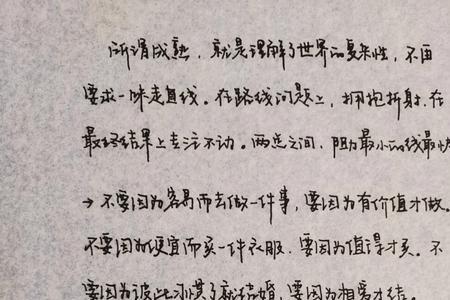 所谓成熟，就是理解了世界的复杂性，不再
要求一味走直线。在路线问题上，拥抱折射，在
最终结果上专注不动。两点之间，阻力最小的线最快
→不要因为容易而去做一件事，要因为有价值才做。
不要因为便宜而买一件衣服，要因为值得才买。不
要因为彼此习惯了就结婚，要因为相爱才结。